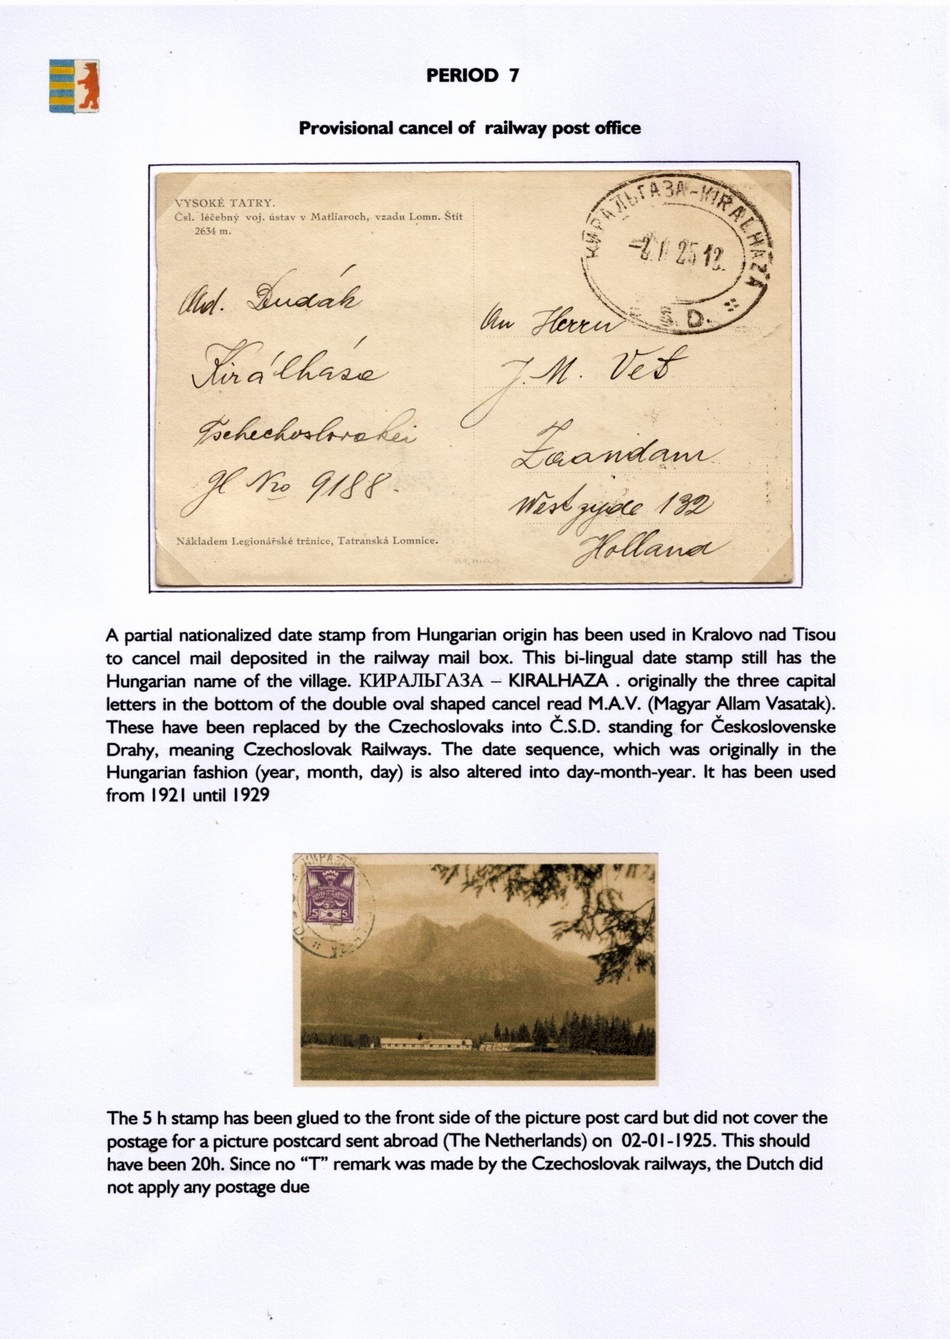 PERIOD 7
Provisional cancel of railway post office
VYSOKÉ TATRY.
Čsl. léčebný voj. ústav v Matliaroch, vzadu Lomn. Štít
2634 m.
КИРАЛЬГАЗА-KIRALHAZA
25 12.
S. D.
Dudák
Királháza
Tschechoslovakei
No 9188.
An Herrn
J. M. Vet
Zaandam
Westzijde 132
Holland
Nákladem Legionářské tržnice, Tatranská Lomnice.
A partial nationalized date stamp from Hungarian origin has been used in Kralovo nad Tisou
to cancel mail deposited in the railway mail box. This bi-lingual date stamp still has the
Hungarian name of the village. КИРАЛЬГАЗА – KIRALHAZA . originally the three capital
letters in the bottom of the double oval shaped cancel read M.A.V. (Magyar Allam Vasatak).
These have been replaced by the Czechoslovaks into Č.S.D. standing for Československe
Drahy, meaning Czechoslovak Railways. The date sequence, which was originally in the
Hungarian fashion (year, month, day) is also altered into day-month-year. It has been used
from 1921 until 1929
5 5
The 5 h stamp has been glued to the front side of the picture post card but did not cover the
postage for a picture postcard sent abroad (The Netherlands) on 02-01-1925. This should
have been 20h. Since no “T” remark was made by the Czechoslovak railways, the Dutch did
not apply any postage due